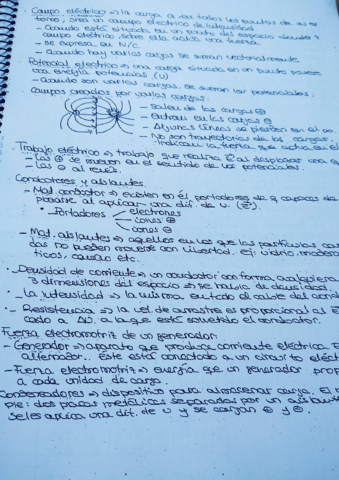 · Campo eléctrico → la carga a su todos los puntos de su en
torno, crea un campo eléctrico de intensidad
- Cuando está situada en un punto del espacio donde
campo eléctrico, sobre ella actúa una fuerza
- Se expresa en N/C.
- Cuando hay varias cargas se suman vectorialmente
Potencial eléctrico → una carga situada en un punto posee
una energía potencial (U)
- Cuando son varias cargas, se suman los potenciales.
Campos creados por varias cargas:
- Salen de las cargas ⊕
- Entran en las cargas ⊖
- Algunas líneas se pierden en el ∞
- No son trayectorias de las cargas
indican la fuerza que actúa
Trabajo eléctrico → trabajo que realiza E al desplazar una q
- Las ⊕ se mueven en el sentido de los potenciales.
- Las ⊖ al revés.
Conductores y aislantes
- Mat. conductor → existen en él portadores de q capaces de
al aplicar una dif. de U. (E).
* Portadores
electrones
iones ⊕
iones ⊖
- Mat. aislantes → aquellos en los que las partículas car
das no pueden moverse con libertad. ej: vidrio, madera
caucho etc...
· Densidad de corriente → un conductor con forma cualquiera
3 dimensiones del espacio → se habla de densidad.
- La intensidad → la misma en todo el cable del cond
· - Resistencia → la vel. de arrastre es proporcional al E
cado a ΔU, a la que está sometido el conductor.
Fuerza electromotriz de un generador
- Generador → aparato que produce corriente eléctrica. E
alternador.. Este está conectado a un circuito eléct
- Fuerza electromotriz → energía que un generador prop
a cada unidad de carga.
Condensadores → dispositivo para almacenar carga. El m
ple: dos placas metálicas separadas por un aislante
se les aplica una dif. de U y se cargan ⊕ y ⊖.